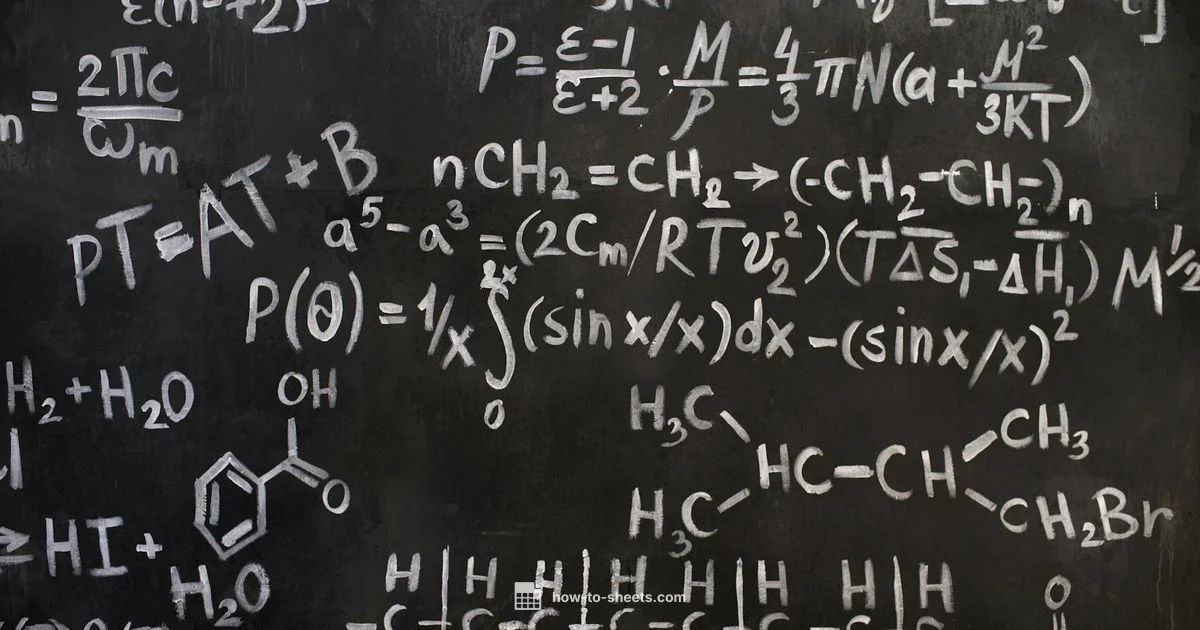 P=ε-1/ε+2·M/P=4/3πN(a+M²/3KT)
=2πc/ωm
PT=AT+B
nCH₂=CH₂→(-CH₂-CH₂-)n
a⁵-a³=(2Cm/RTv₂²)(T∆S₁-∆H₁) M¹/²
P(θ)=1/x∫₀²ˣ(sin x/x)dx-(sinx/x)²
H₂+H₂O
OH
O
H₃C
CH₃
HC-CH
H₃C
CH₂Br
→HI+
H₂O
H H H H H H H H
O
how-to-sheets.com